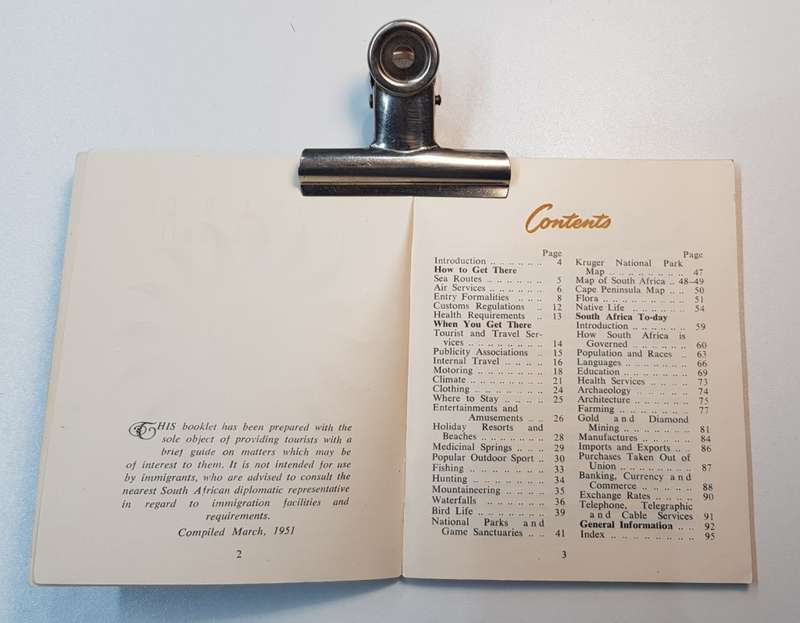 THIS booklet has been prepared with the
sole object of providing tourists with a
brief guide on matters which may be
of interest to them. It is not intended for use
by immigrants, who are advised to consult the
nearest South African diplomatic representative
in regard to immigration facilities and
requirements.
Compiled March, 1951
2
Contents
Page
Introduction .. .. .. .. .. 4
How to Get There
Sea Routes .. .. .. .. .. 5
Air Services .. .. .. .. .. 6
Entry Formalities .. .. .. 8
Customs Regulations .. 12
Health Requirements .. 13
When You Get There
Tourist and Travel Ser-
vices .. .. .. .. .. .. 14
Publicity Associations .. 15
Internal Travel .. .. .. 16
Motoring .. .. .. .. .. 18
Climate .. .. .. .. .. .. 21
Clothing .. .. .. .. .. 24
Where to Stay .. .. .. 25
Entertainments and
Amusements .. .. 26
Holiday Resorts and
Beaches .. .. .. .. .. 28
Medicinal Springs .. .. 29
Popular Outdoor Sport .. 30
Fishing .. .. .. .. .. .. 33
Hunting .. .. .. .. .. 34
Mountaineering .. .. .. 35
Waterfalls .. .. .. .. .. 36
Bird Life .. .. .. .. .. 39
National Parks and
Game Sanctuaries .. .. 41
Page
Kruger National Park
Map .. .. .. .. .. .. 47
Map of South Africa .. 48-49
Cape Peninsula Map .. .. 50
Flora .. .. .. .. .. .. 51
Native Life .. .. .. .. 54
South Africa To-day
Introduction .. .. .. .. 59
How South Africa is
Governed .. .. .. .. 60
Population and Races .. 63
Languages .. .. .. .. .. 66
Education .. .. .. .. .. 69
Health Services .. .. .. 73
Archaeology .. .. .. .. 74
Architecture .. .. .. .. 75
Farming .. .. .. .. .. 77
Gold and Diamond
Mining .. .. .. .. .. 81
Manufactures .. .. .. .. 84
Imports and Exports .. 86
Purchases Taken Out of
Union .. .. .. .. .. 87
Banking, Currency and
Commerce .. .. .. .. 88
Exchange Rates .. .. .. 90
Telephone, Telegraphic
and Cable Services 91
General Information .. .. 92
Index .. .. .. .. .. .. 95
3